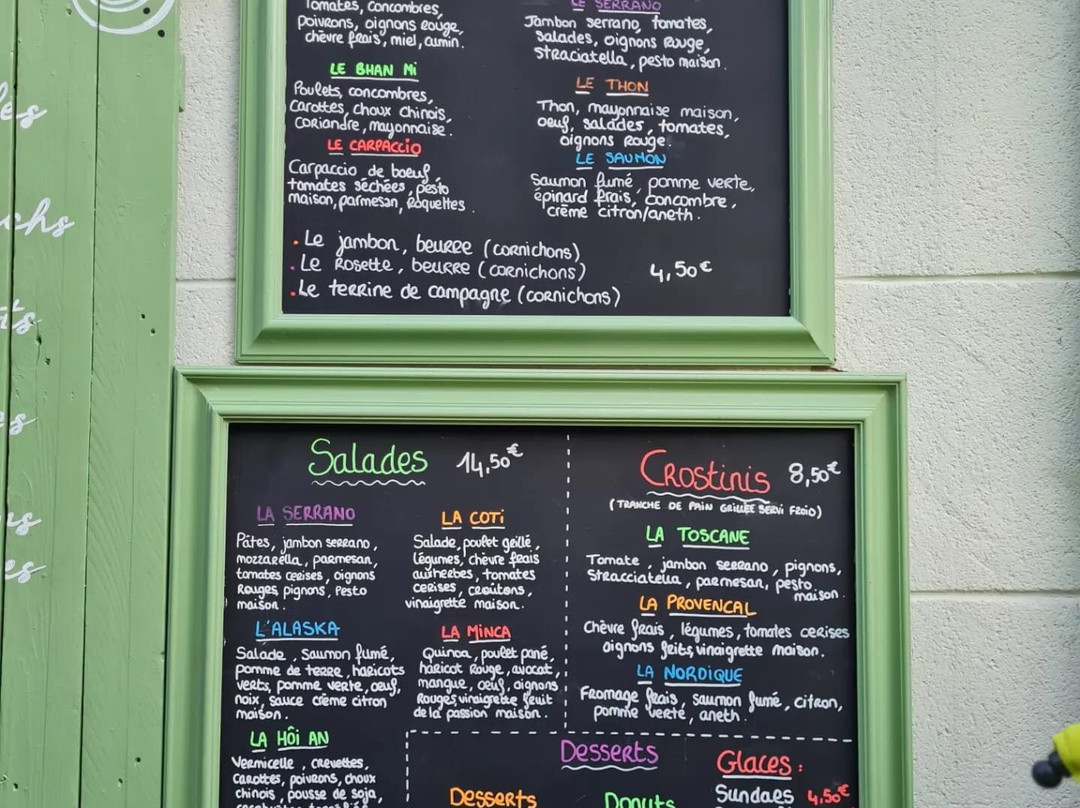 Tomates, concombres,
poivrons, oignons rouge,
chèvre frais, miel, cumin.
LE BHAN Mi
Poulets, concombres,
Carottes, choux chinois,
Coriandre, mayonnaise.
LE CARPACCIO
Carpaccio de boeuf,
tomates séchées, pesto
maison, parmesan, Roquettes.
LE SERRANO
Jambon serrano, tomates,
salades, oignons Rouge,
straciatella, pesto maison.
LE THON
Thon, mayonnaise maison,
oeuf, salades, tomates,
oignons Rouge.
LE SAUMON
Saumon fumé, pomme verte,
épinard frais, concombre,
crème citron/aneth.
. Le jambon, beurre (cornichons)
. Le Rosette, beurre (cornichons)
. Le terrine de campagne (cornichons)
4,50€
Salades 14,50€
LA SERRANO
Pâtes, jambon serrano,
mozzarella, parmesan,
tomates cerises, oignons
Rouges, pignons, Pesto
maison.
LA COTi
Salade, poulet grillé,
légumes, chèvre frais
aux herbes, tomates
cerises, croûtons,
vinaigrette maison.
L'ALASKA
Salade, saumon fumé,
pomme de terre, haricots
verts, pomme verte, oeuf,
noix, sauce crème citron
maison.
LA MiNCA
Quinoa, poulet pané,
haricot Rouge, avocat,
mangue, oeuf, oignons
Rouges, vinaigrette fruit
de la passion maison.
LA HÔI AN
Vermicelle, crevettes,
Carottes, poivrons, choux
chinois, pousse de soja,
Crostinis 8,50€
(TRANCHE DE PAIN GRILLÉE SERVI FROID)
LA TOSCANE
Tomate, jambon serrano, pignons,
Stracciatella, parmesan, pesto
maison.
LA PROVENCAL
Chèvre frais, légumes, tomates cerises
oignons frits, vinaigrette maison.
LA NORDIQUE
Fromage frais, saumon fumé, citron,
pomme verte, aneth.
Desserts
Desserts
Donuts
Glaces :
Sundaes 4,50€